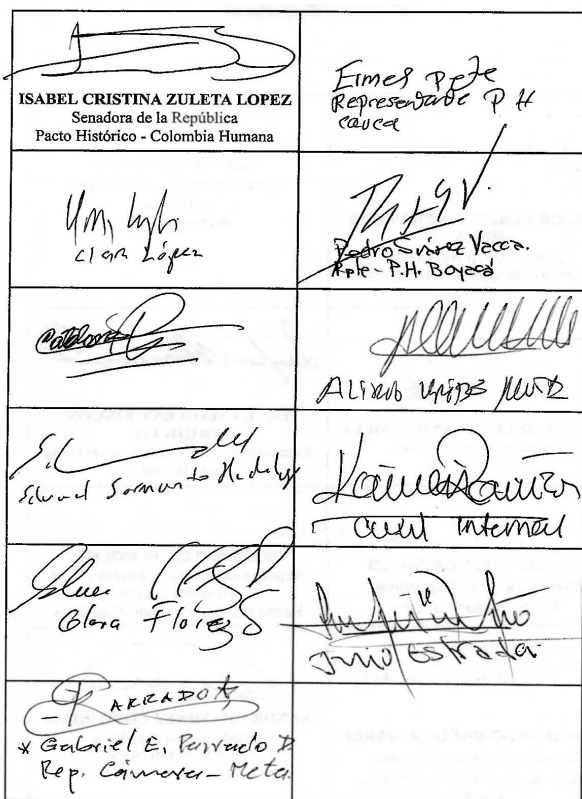 ISABEL CRISTINA ZULETA LOPEZ
Senadora de la República
Pacto Histórico - Colombia Humana
Ermes Pete
Representante P H
cauca
Clara López
Pedro Suárez Vacca.
Rpte - P.H. Boyacá
Catalina
Alirio Uribe Muñoz
Eduard Sarmiento Hidalgo
Curul Internal
Gloria Florez
Julio Estrada
PARRADO
* Gabriel E. Parrado D
Rep. Cámara - Meta